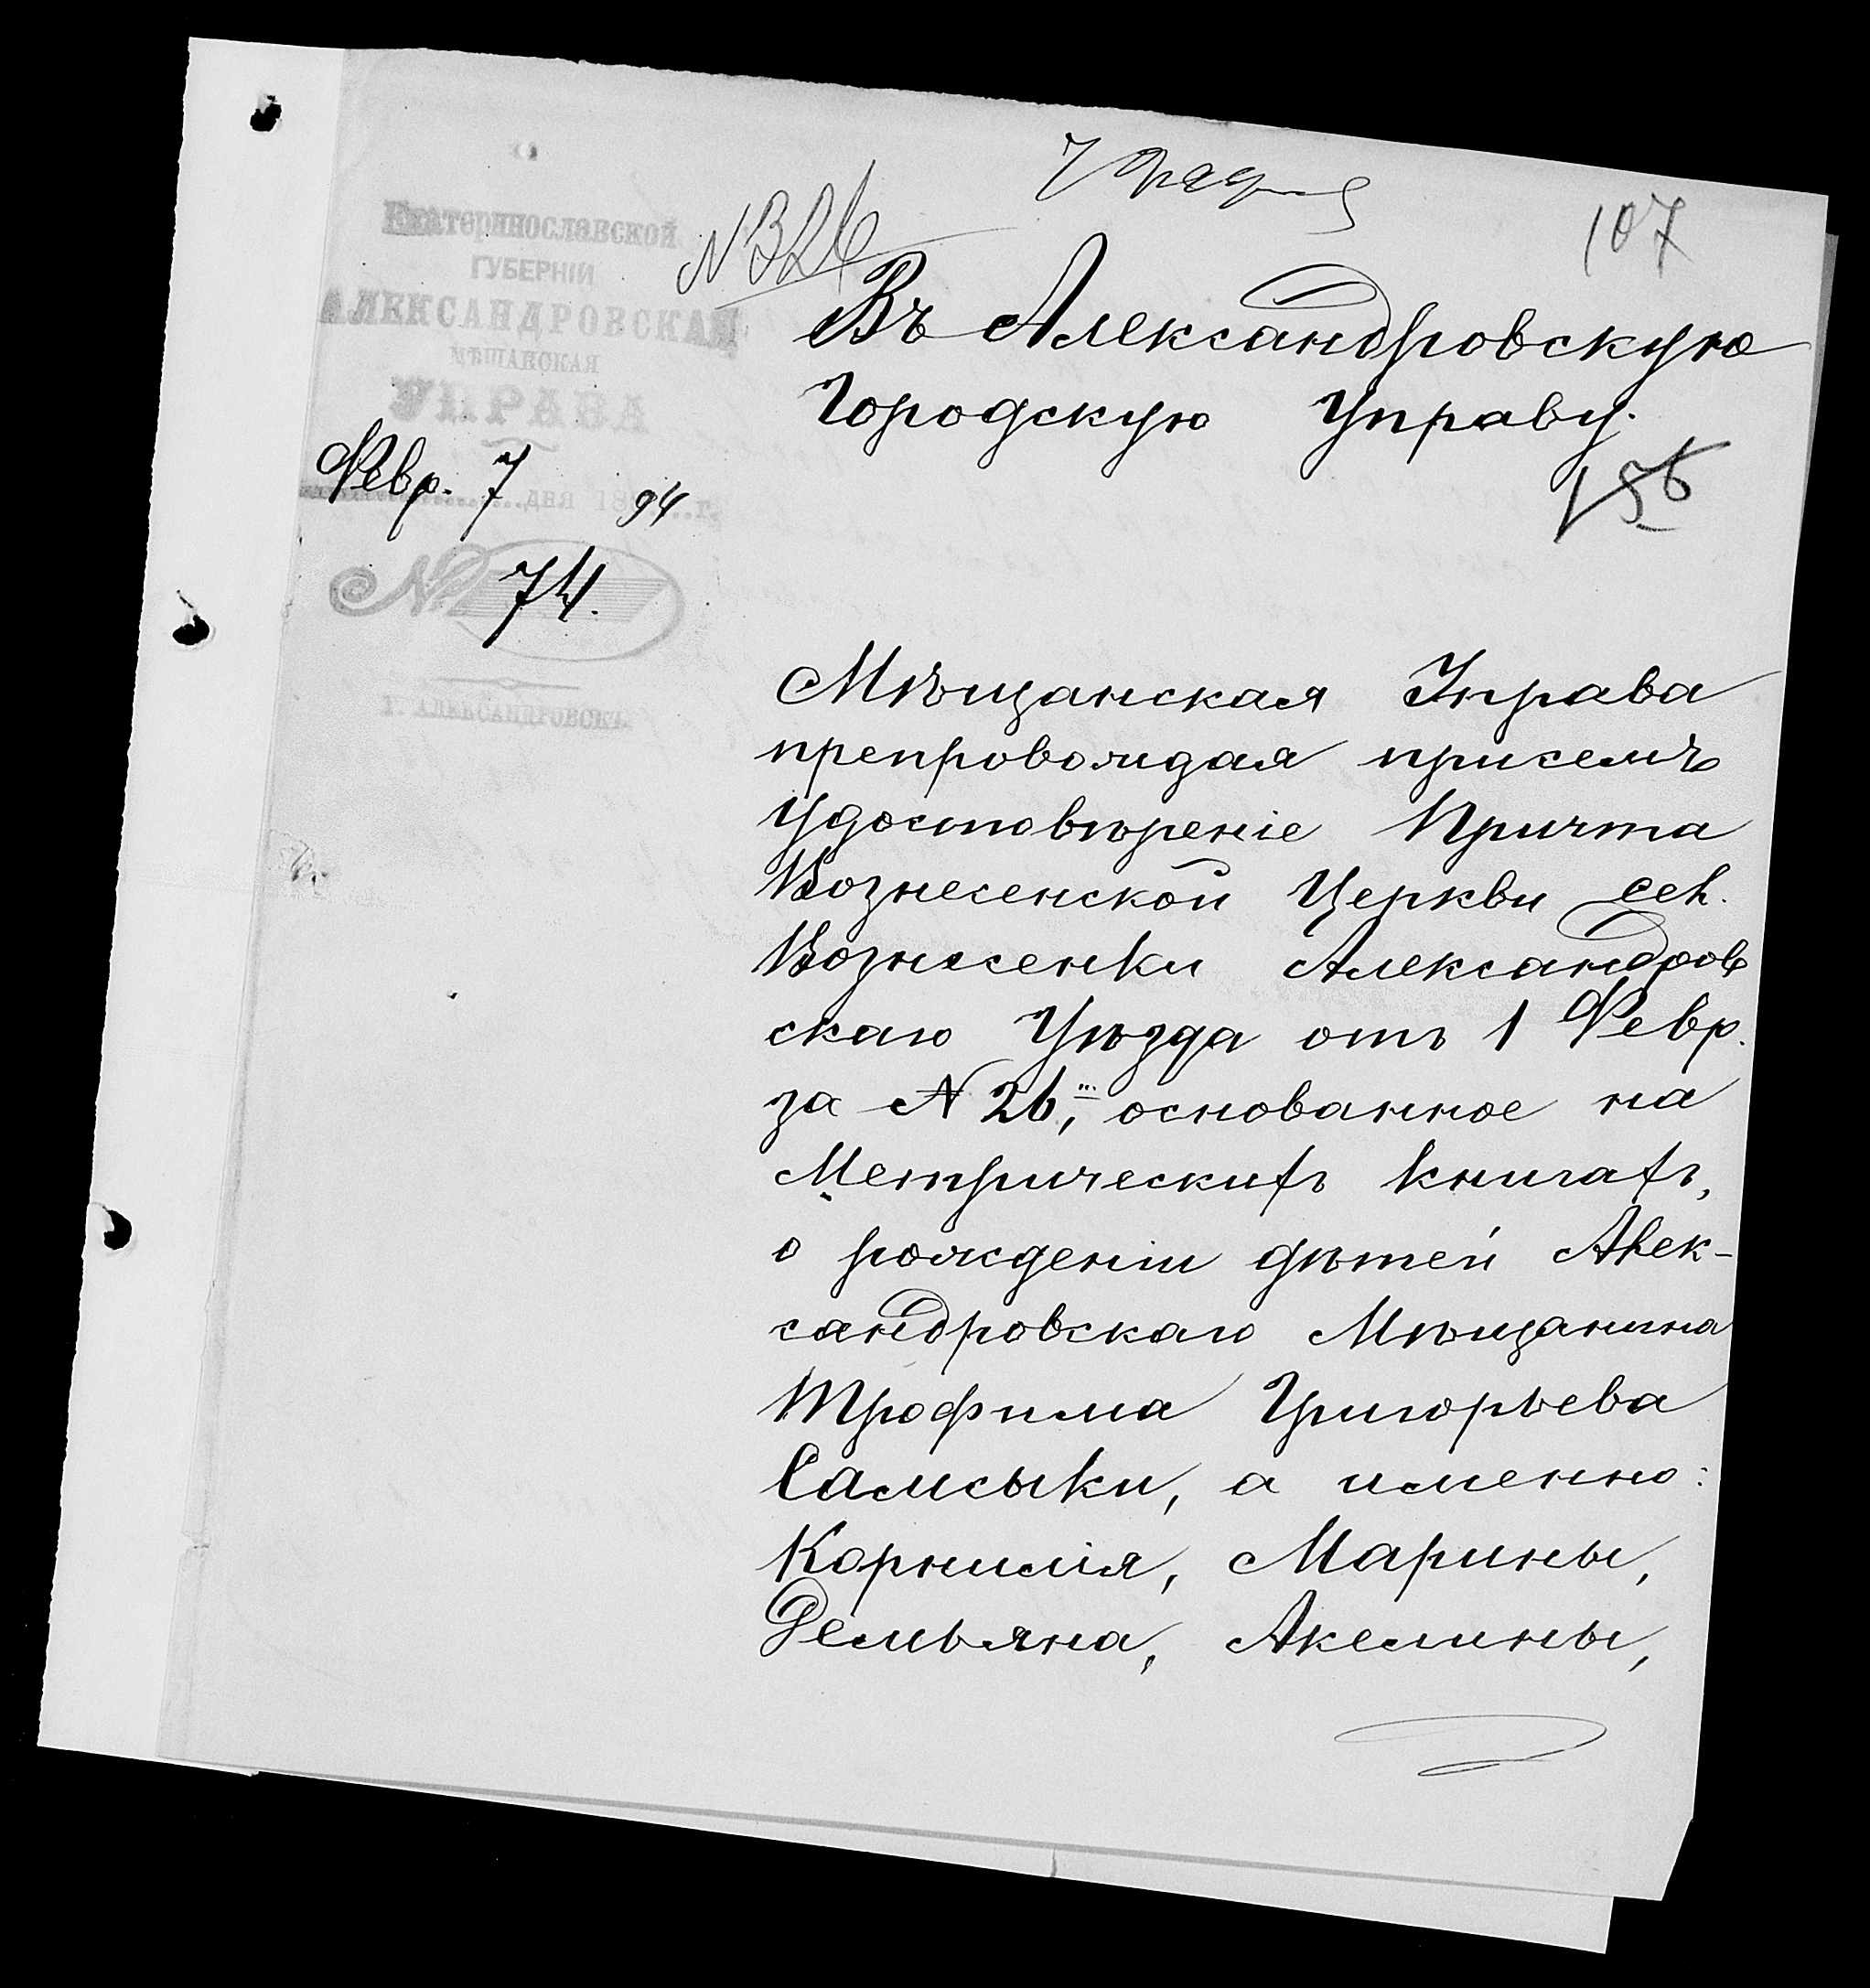 7 Февр
107
№ 326
Екатеринославской
ГУБЕРНІИ
АЛЕКСАНДРОВСКАЯ
МѢЩАНСКАЯ
УПРАВА
Февр. 7 дня 1894 г.
№ 74.
Г. АЛЕКСАНДРОВСКЪ.
Въ Александровскую
Городскую Управу.
156
Мѣщанская Управа
препровождая присемъ
удостовѣреніе Причта
Вознесенской Церкви сел.
Вознесенки Александров
скаго Уѣзда отъ 1 Февр.
за № 26, основанное на
Метрическихъ книгахъ,
о рожденіи дѣтей Алек-
сандровскаго Мѣщанина
Трофима Григорьева
Самсыки, а именно:
Корнилія, Марины,
Демьяна, Акелины,